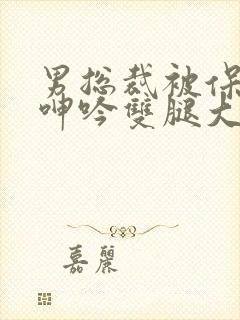 男総裁被保
呻吟雙腿大
嘉麗